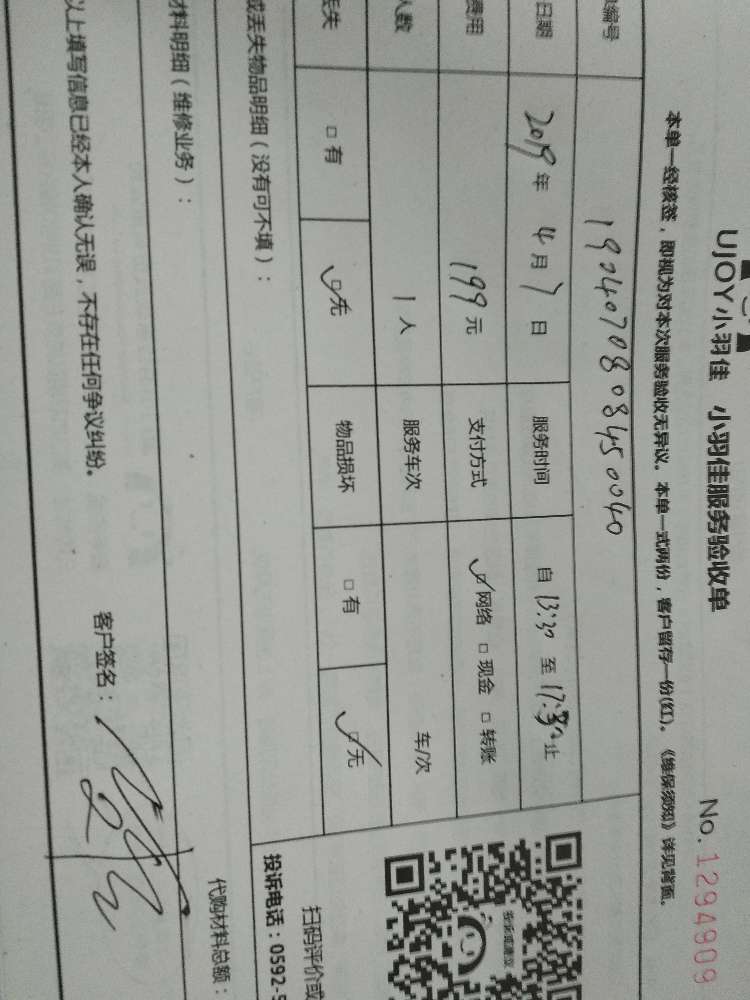 UJOY小羽佳 小羽佳服务验收单
No. 1294909
本单一经核签，即视为对本次服务验收无异议。本单一式两份，客户留存一份(红)。《维保须知》详见背面。
编号 1904070808450040
日期 2019年 4月7日 服务时间 自13:30至17:30止
费用 199元 支付方式 ☑网络 □现金 □转账
人数 1人 服务车次 车/次
丢失 □有 ☑无 物品损坏 □有 ☑无
或丢失物品明细（没有可不填）：
扫码评价或
投诉电话：0592-5
材料明细（维修业务）：
代购材料总额：
以上填写信息已经本人确认无误，不存在任何争议纠纷。 客户签名：